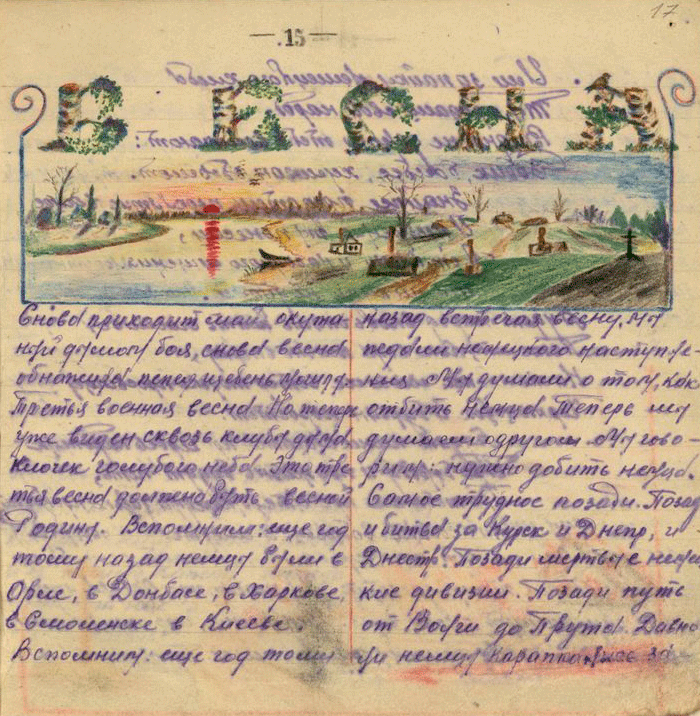 17
— 15 —
ВЕСНА
Снова приходит май окута-
ный дымом боя, снова весна
обнажила пепел щебень
Третья военная весна. Но теперь
уже виден сквозь клубы дыма
клочек голубого неба. Эта тре
тья весна должна быть весной
Родины. Вспомним: еще год
тому назад немцы были в
Орле, в Донбасе, в Харкове,
в Смоленске в Киеве.
Вспомним: еще год тому
назад встречая весну, мы
немецкого наступле-
ния. Мы думали о том, как
отбить немца. Теперь мы
думаем о другом. Мы гово-
рим: нужно добить немца.
Самое трудное позади. Позад
и битва за Курск и Днепр, и
Днестр. Позади мертвые немец
кие дивизии. Позади путь
от Волги до Прута. Давно
ли немцы карапкались за